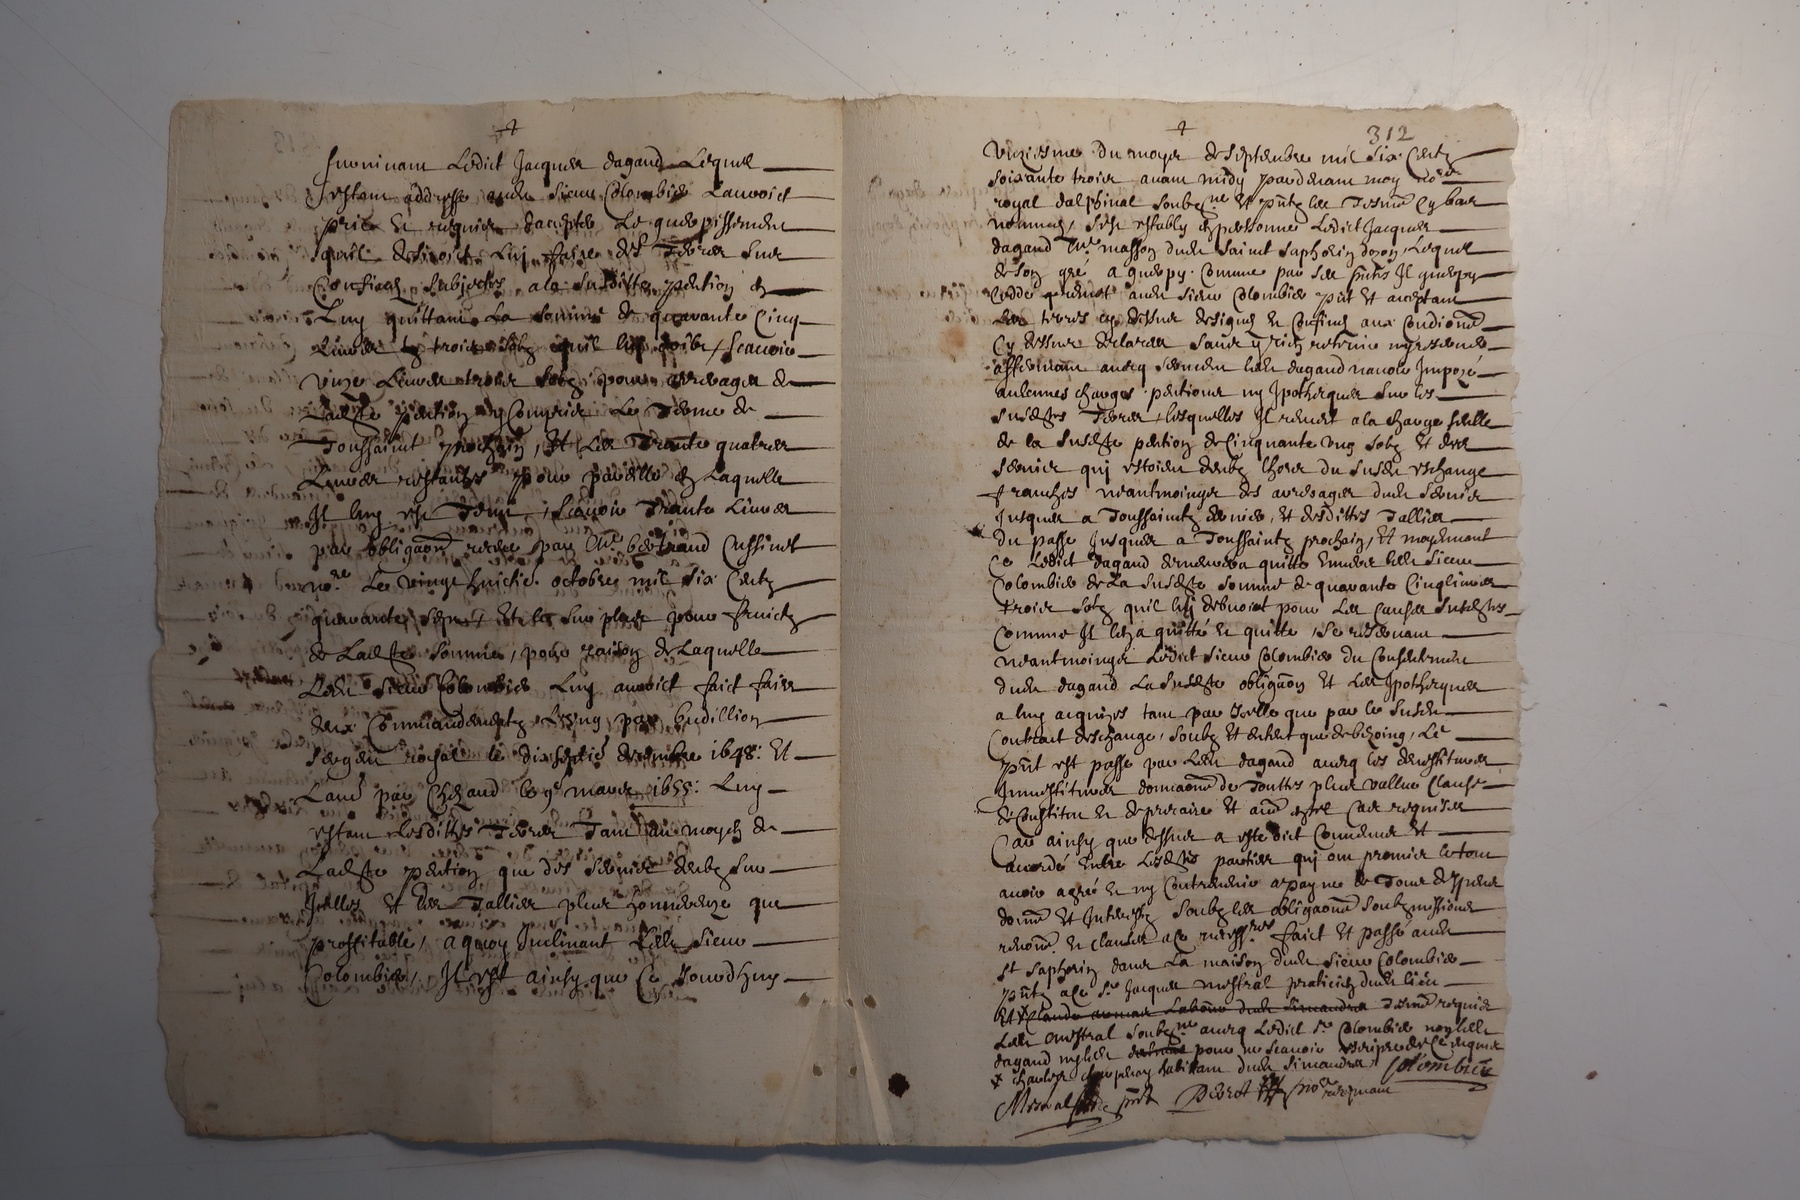 Ledict Jacques dagand Lequel
estant addressé audit Sieur Colombier Lauroict
prié et requier d'accepter Le guerpissement
quil desiroict Luy faire des Terres sur
Confinez subjectes a la susditte pention et
Luy quittant La somme de quarante Cinq
Livres et trois solz quil luy doibt / scauoir
unze Livres troies solz pour arreages de
Ladte pention y Compries Le Terme de
Toussainct prochain, Et Les Trante quatres
Livres restantes pour
Il luy est Tenu, scauoir Trante Livres
par obligaon receue par Me bertrand Cussinet
nore Le vingt huictie octobre mil six Centz
quarante sept, Et le surplus pour fruictz
de Ladte somme, pour raison de Laquelle
Ledt Sieur Colombier Luy auroict faict faire
deux Commandementz Lesung par budillion
sergent royal le dixseptie decembre 1648: Et
Laue par le 9e mars 1655: Luy
estant Lesdittes Terres Tant au moyen de
Ladte pention que des seruies deubz sur
Icelles Et des Tallies plus honnereuze que
proffitable, a quoy Inclinant Ledt sieur
Colombier, Il est ainsy que Ce Jourdhuy
312
unziesme du moys de septembre mil six Centz
soixante troies auant midy pardeuant moy nore
royal dalphinal soubzne Et pntz les Tesms cy bas
nommes, s'est estably en personne Ledict Jacques
dagand Me masson dudt Saint Saphorin dozon, Lequel
de son gré a guerpy Comme par ses pntes Il guerpy
Cedde et remet audt sieur Colombier pnt Et acceptant
Les terres cy dessus designes et Confines aux Condions
Cy dessus declarees sans y rien retenir ny reserue
affermant auecq serment ledt dagand nauoir Impozé
aulcunes charges pentions ny Ipotheques sur les
susdtes Terres, lesquelles Il remet a la charge
de la susdte pention de Cinquante ung solz Et des
seruies qui estoient deubz lhors du susdt eschange
franches neantmoinges des arreages dudt seruie
Jusques a Toussainctz dernier, Et desdittes Tallies
du passe Jusques a Toussainctz prochain, Et moyenant
Ce Ledict dagand demeurera quitte Enuers ledt sieur
Colombier de La susdte somme de quarante Cinq liures
trois solz quil luy debuoict pour Les causes susdtes
Comme Il len a quitté et quitte, se reseruant
neantmoinges Ledict sieur Colombier du Consentement
dudt dagand La susdte obligaon Et Les Ipotheques
a luy acquizes tant par Icelle que par le susdt
Contract deschange, soubz Et entant que de bezoing, Le
pnt est passe par Ledt dagand auecq les deuestitures
Inuestitures donnaons de Touttes plus vallue Clause
de Constitut et de precaire Et aues requises
Car ainsy que dessus a esté dict Conuenu Et
accordé Entre Lesdtes parties qui ont promis le tout
auoir agréé et ny Contreuenir a payne de Tous despens
dom Et Interestz soubz les obligaons soubzmissions
renons et clauses a ce necessres faict Et passé audt
st Saphorin dans La maison dudt sieur Colombier
pntz a ce Sr Jacques mestral praticien dudt lieu
Tesms requis
Ledt mestral soubzne auecq Ledict Sr Colombier non ledt
dagand ny ledt pour ne scauoir escripre de ce requis
x habitant dudt Simandres Colombier
Mestral pnt Perrot nore receuant